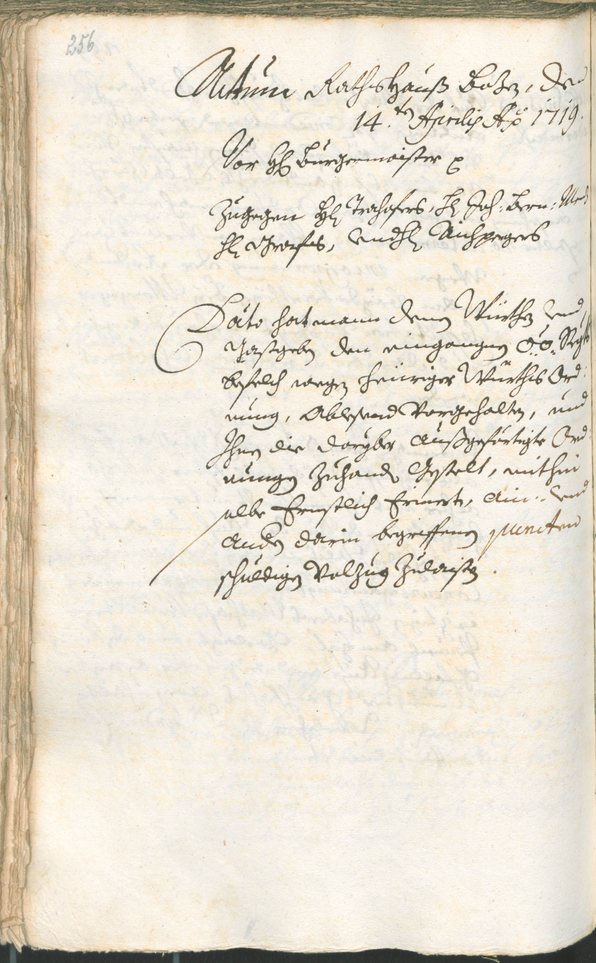 256
Actum Rathshauß Bozen, den
14.ten Aprilis Ao 1719.
Vor H: Burgermaister p
Zugegen H: Trahofers, H: Joh: Bern:
H: Grafes, und H:
Dato hat mann denen Würthen und
Gastgeben den eingangnen O:Ö:
befelch wegen heüriger Würths Ord
nung, Ablesend Vorgehalten, und
Ihnen die darüber außgefertigte Ord
nungen Zuhanden Gestelt, mithin
selbe Ernstlich Erinert, ain: und
andern darin begriffenen puncten
schuldigen Volzug Zulaisten.